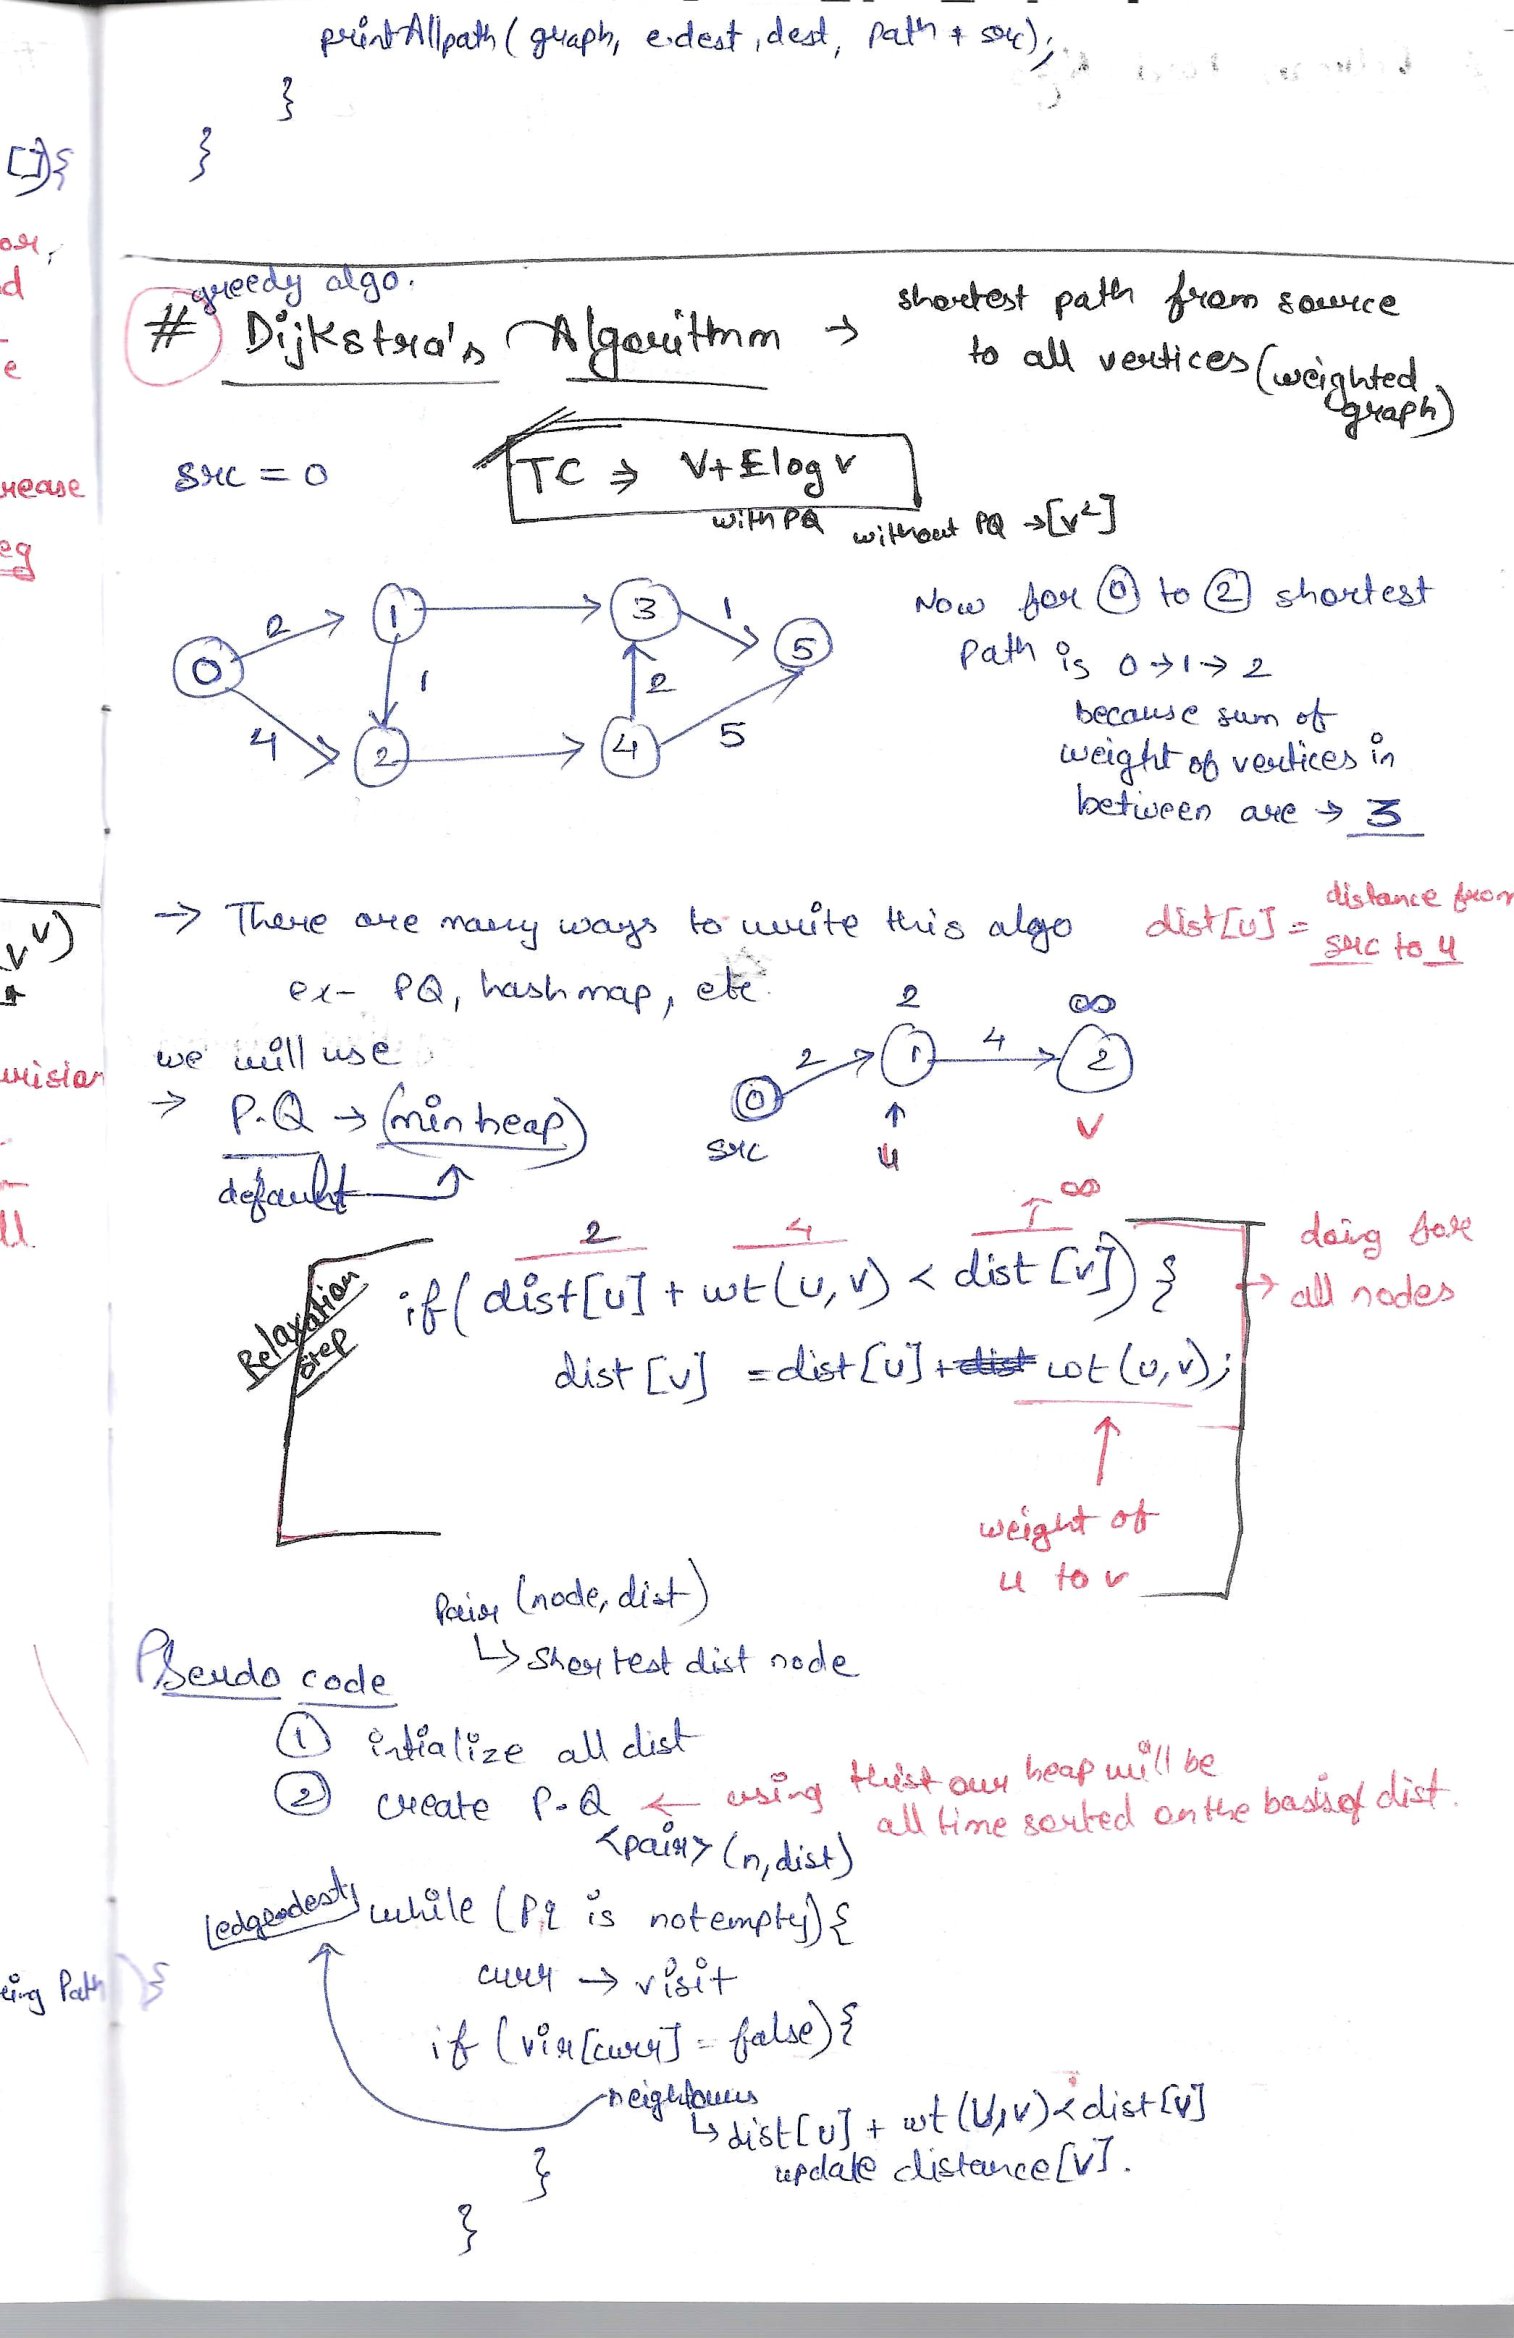 printAllpath ( graph, e.dest, dest, path + src);
}
}
greedy algo.
# Dijkstra's Algorithm → shortest path from source
to all vertices (weighted
graph)
src = 0
TC ⇒ V+Elog v
with PQ
without PQ → [v²]
0 2 1 3 1 5
1 2
4 2 4 5
Now for 0 to 2 shortest
path is 0→1→2
because sum of
weight of vertices in
between are → 3
→ There are many ways to write this algo
ex- PQ, hashmap, etc.
dist[u] = distance from
src to u
we will use
→ P.Q → (min heap)
default
2 ∞
0 2 1 4 2
src u v
2 4 ∞
Relaxation
step
if( dist[u] + wt(u,v) < dist [v]) {
dist [v] = dist [u] + dist wt (u,v);
→ doing for
all nodes
weight of
u to v
Pair (node, dist)
↳ shortest dist node
Pseudo code
1 intialize all dist
2 create P.Q ← using thist our heap will be
all time sorted on the basis of dist.
<pair> (n, dist)
while (Pq is not empty) {
curr → visit
if (vis[curr] = false) {
neighbours
↳ dist[u] + wt (u,v) < dist[v]
update distance[v].
}
}
[]){
or,
d
e
rease
eg
ll
ing Path ) {